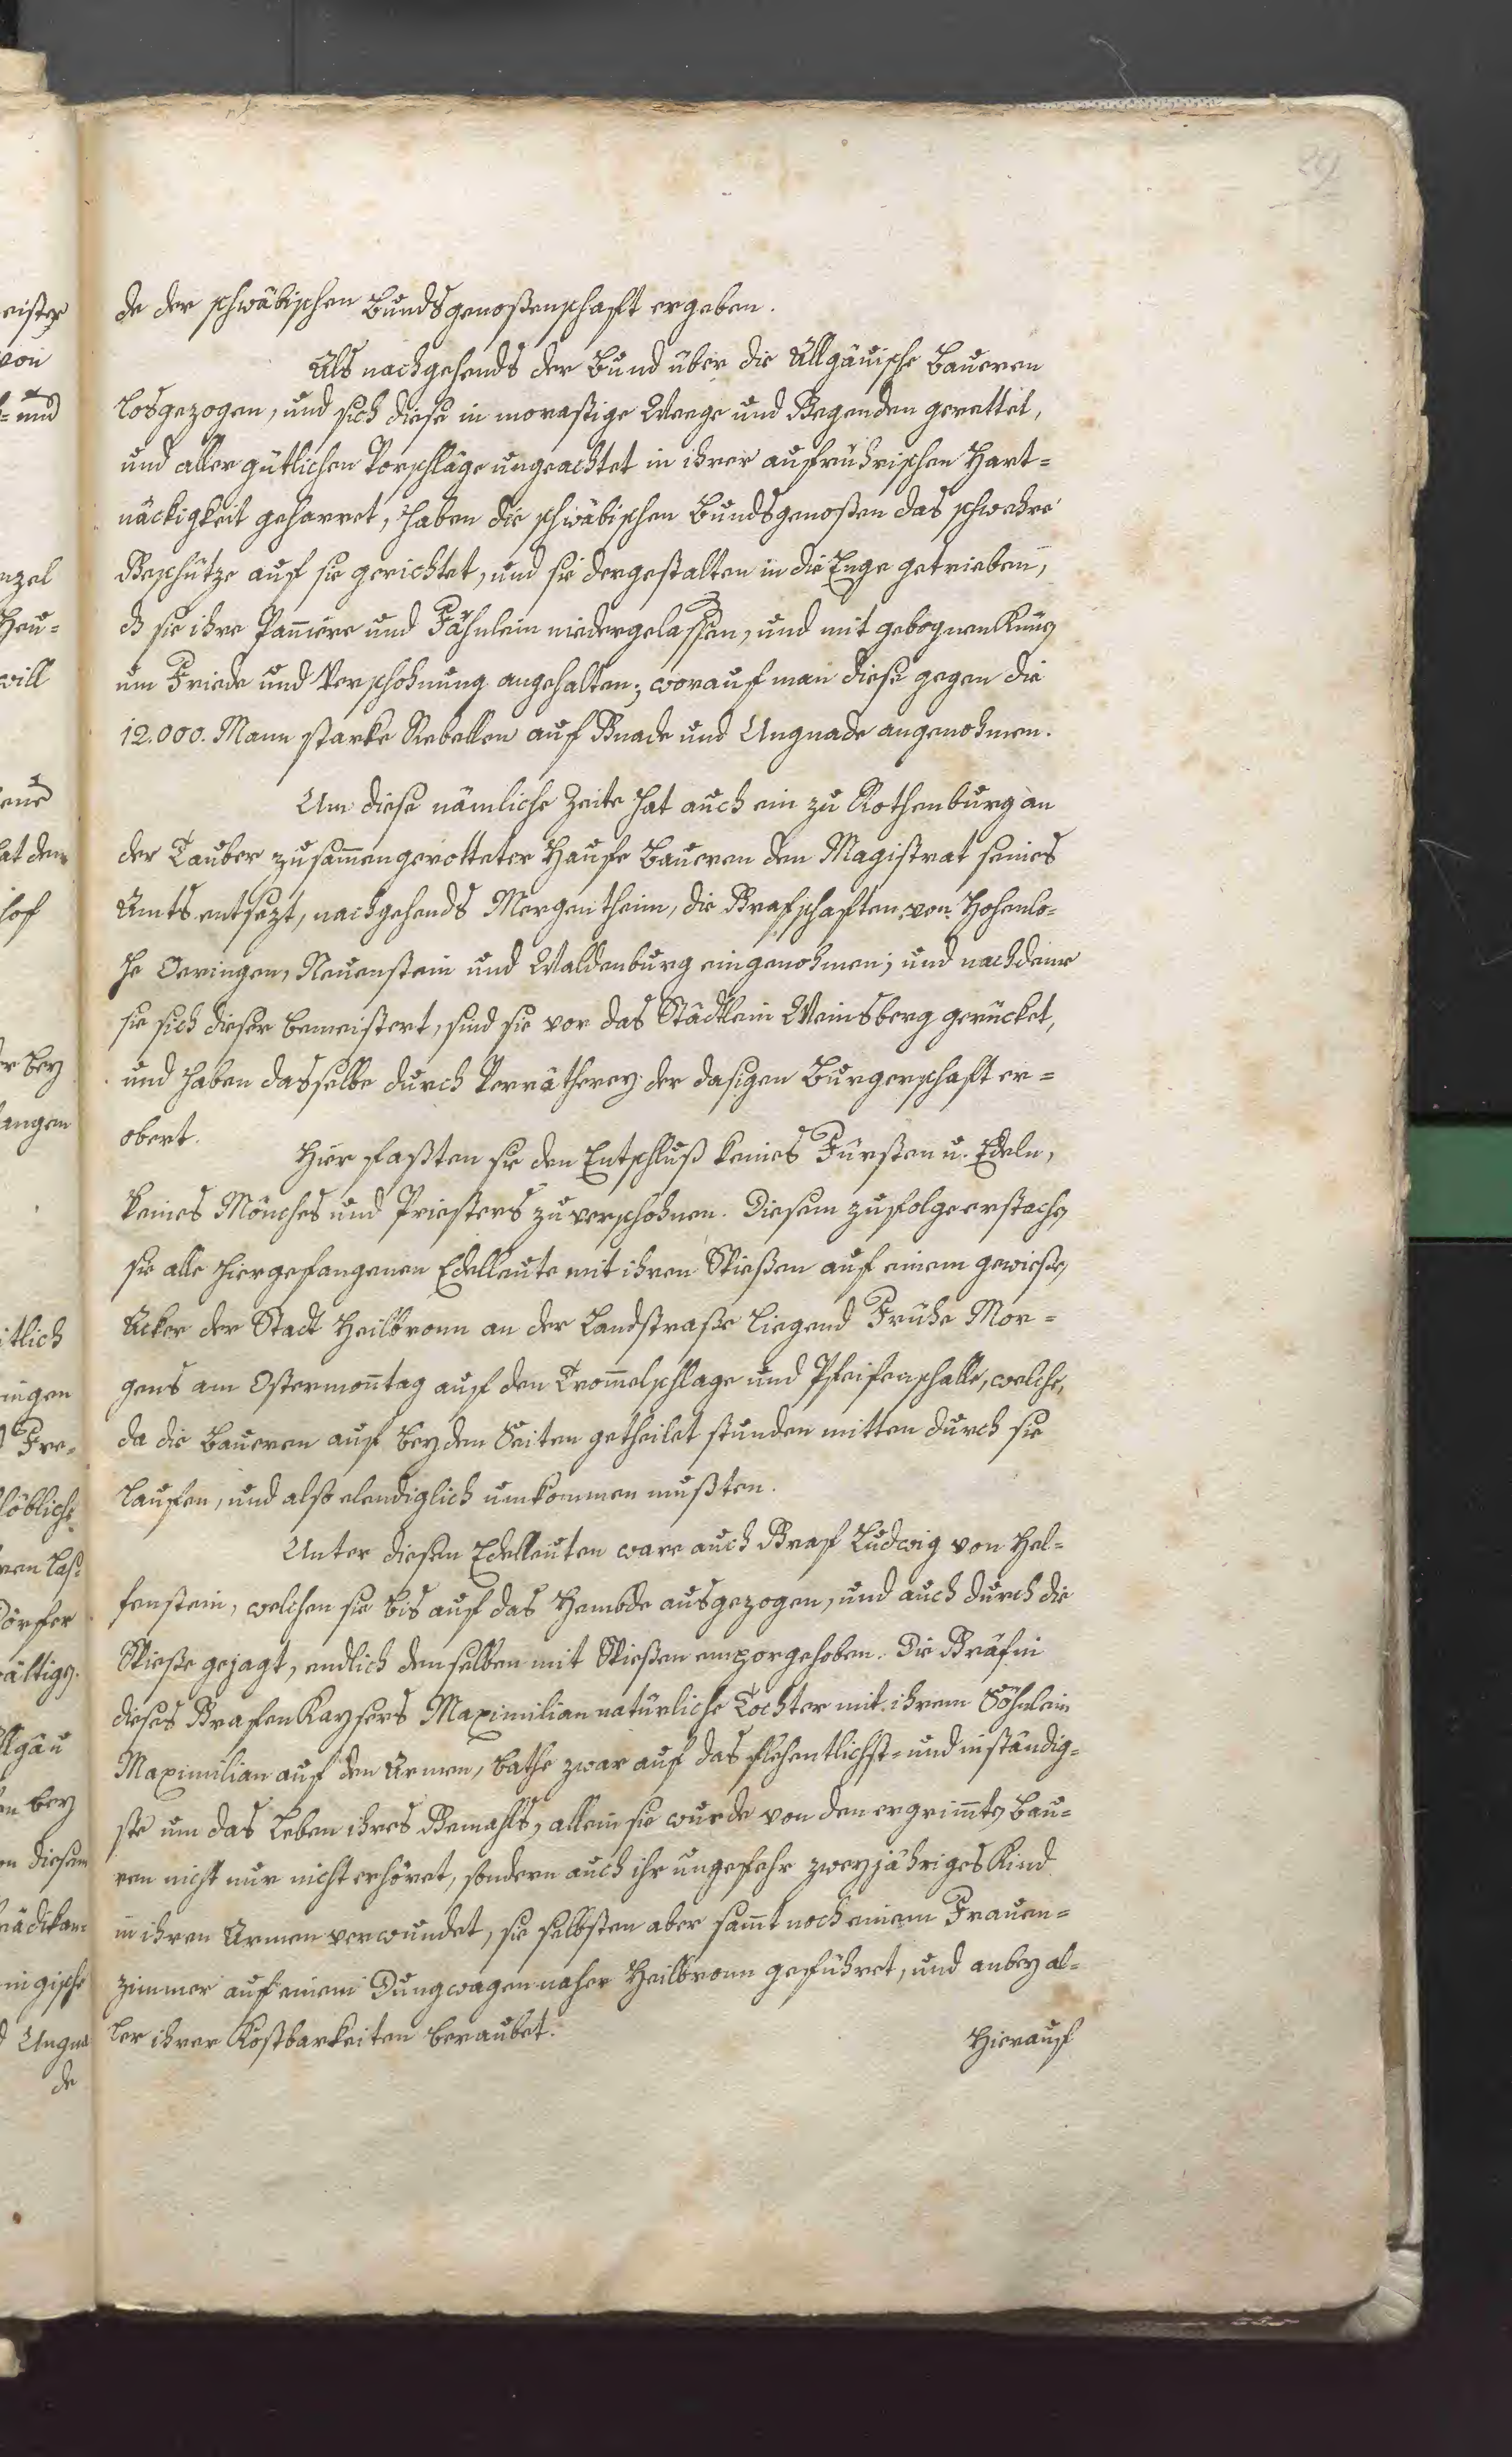 29
de der schwäbischen Bundsgenoßenschaft ergeben.
Als nachgehends der Bund über die Allgäuische Bauren
losgezogen, und sich diese in moraßtige Weege und Gegenden gerettet,
und aller gütlichen Vorschläge ungeachtet in ihrer aufrührischen Hart=
näckigkeit geharret, haben die schwäbischen Bundsgenoßen das schwehre
Geschütze auf sie gerichtet, und sie dergestalten in die Enge getrieben,
dz sie ihre Panniere und Fähnlein niedergelassen, und mit gebognen Knien
um Friede und Verschohnung angehalten; worauf man diese gegen die
12.000. Mann starke Rebellen auf Gnade und Ungnade angenohmen.
Um diese nämliche Zeite hat auch ein zu Rothenburg an
der Tauber zusam̄engerotteter Haufe Baueren den Magistrat seines
Amts entsezt, nachgehends Mergentheim, die Grafschaften von Hohenlo=
he Oeringen, Neuenstein und Waldenburg eingenohmen; und nachdeme
sie sich dieser bemeistert, sind sie vor das Städtlein Weinsberg gerücket,
und haben dasselbe durch Verrätherey der dasigen Burgerschaft er=
obert.
Hier faßten sie den Entschluß keines Fürsten u. Edeln,
keines Mönches und Priesters zu verschohnen. Diesem zufolge erstachen
sie alle hier gefangenen Edelleute mit ihren Spießen auf einem gewießen
Acker der Stadt Heilbronn an der Landstraße liegend Frühe Mor=
gens am Ostermon̄tag auf den Trom̄elschlage und Pfeifenschalle, welche,
da die Baueren auf beyden Seiten getheilet stunden mitten durch sie
laufen, und also elendiglich umkommen mußten.
Unter diesen Edelleuten ware auch Graf Ludwig von Hel=
fenstein, welchen sie bis auf das Hembde ausgezogen, und auch durch die
Spieße gejagt, endlich denselben mit Spießen emporgehoben. Die Gräfin
dieses Grafen Kaysers Maximilian natürliche Tochter mit ihrem Söhnlein
Maximilian auf den Armen, bathe zwar auf das flehentlichst= und inständig=
ste um das Leben ihres Gemahls, allein sie wurde von den ergrim̄ten Bau=
ren nicht nur nicht erhöret, sondern auch ihr ungefehr zweyjähriges Kind
in ihren Armen verwundet, sie selbsten aber sam̄t noch einem Frauen=
zimmer auf einem Dungwagen naher Heilbronn geführet, und anbey al=
ler ihrer Kostbarkeiten beraubet.
Hierauf